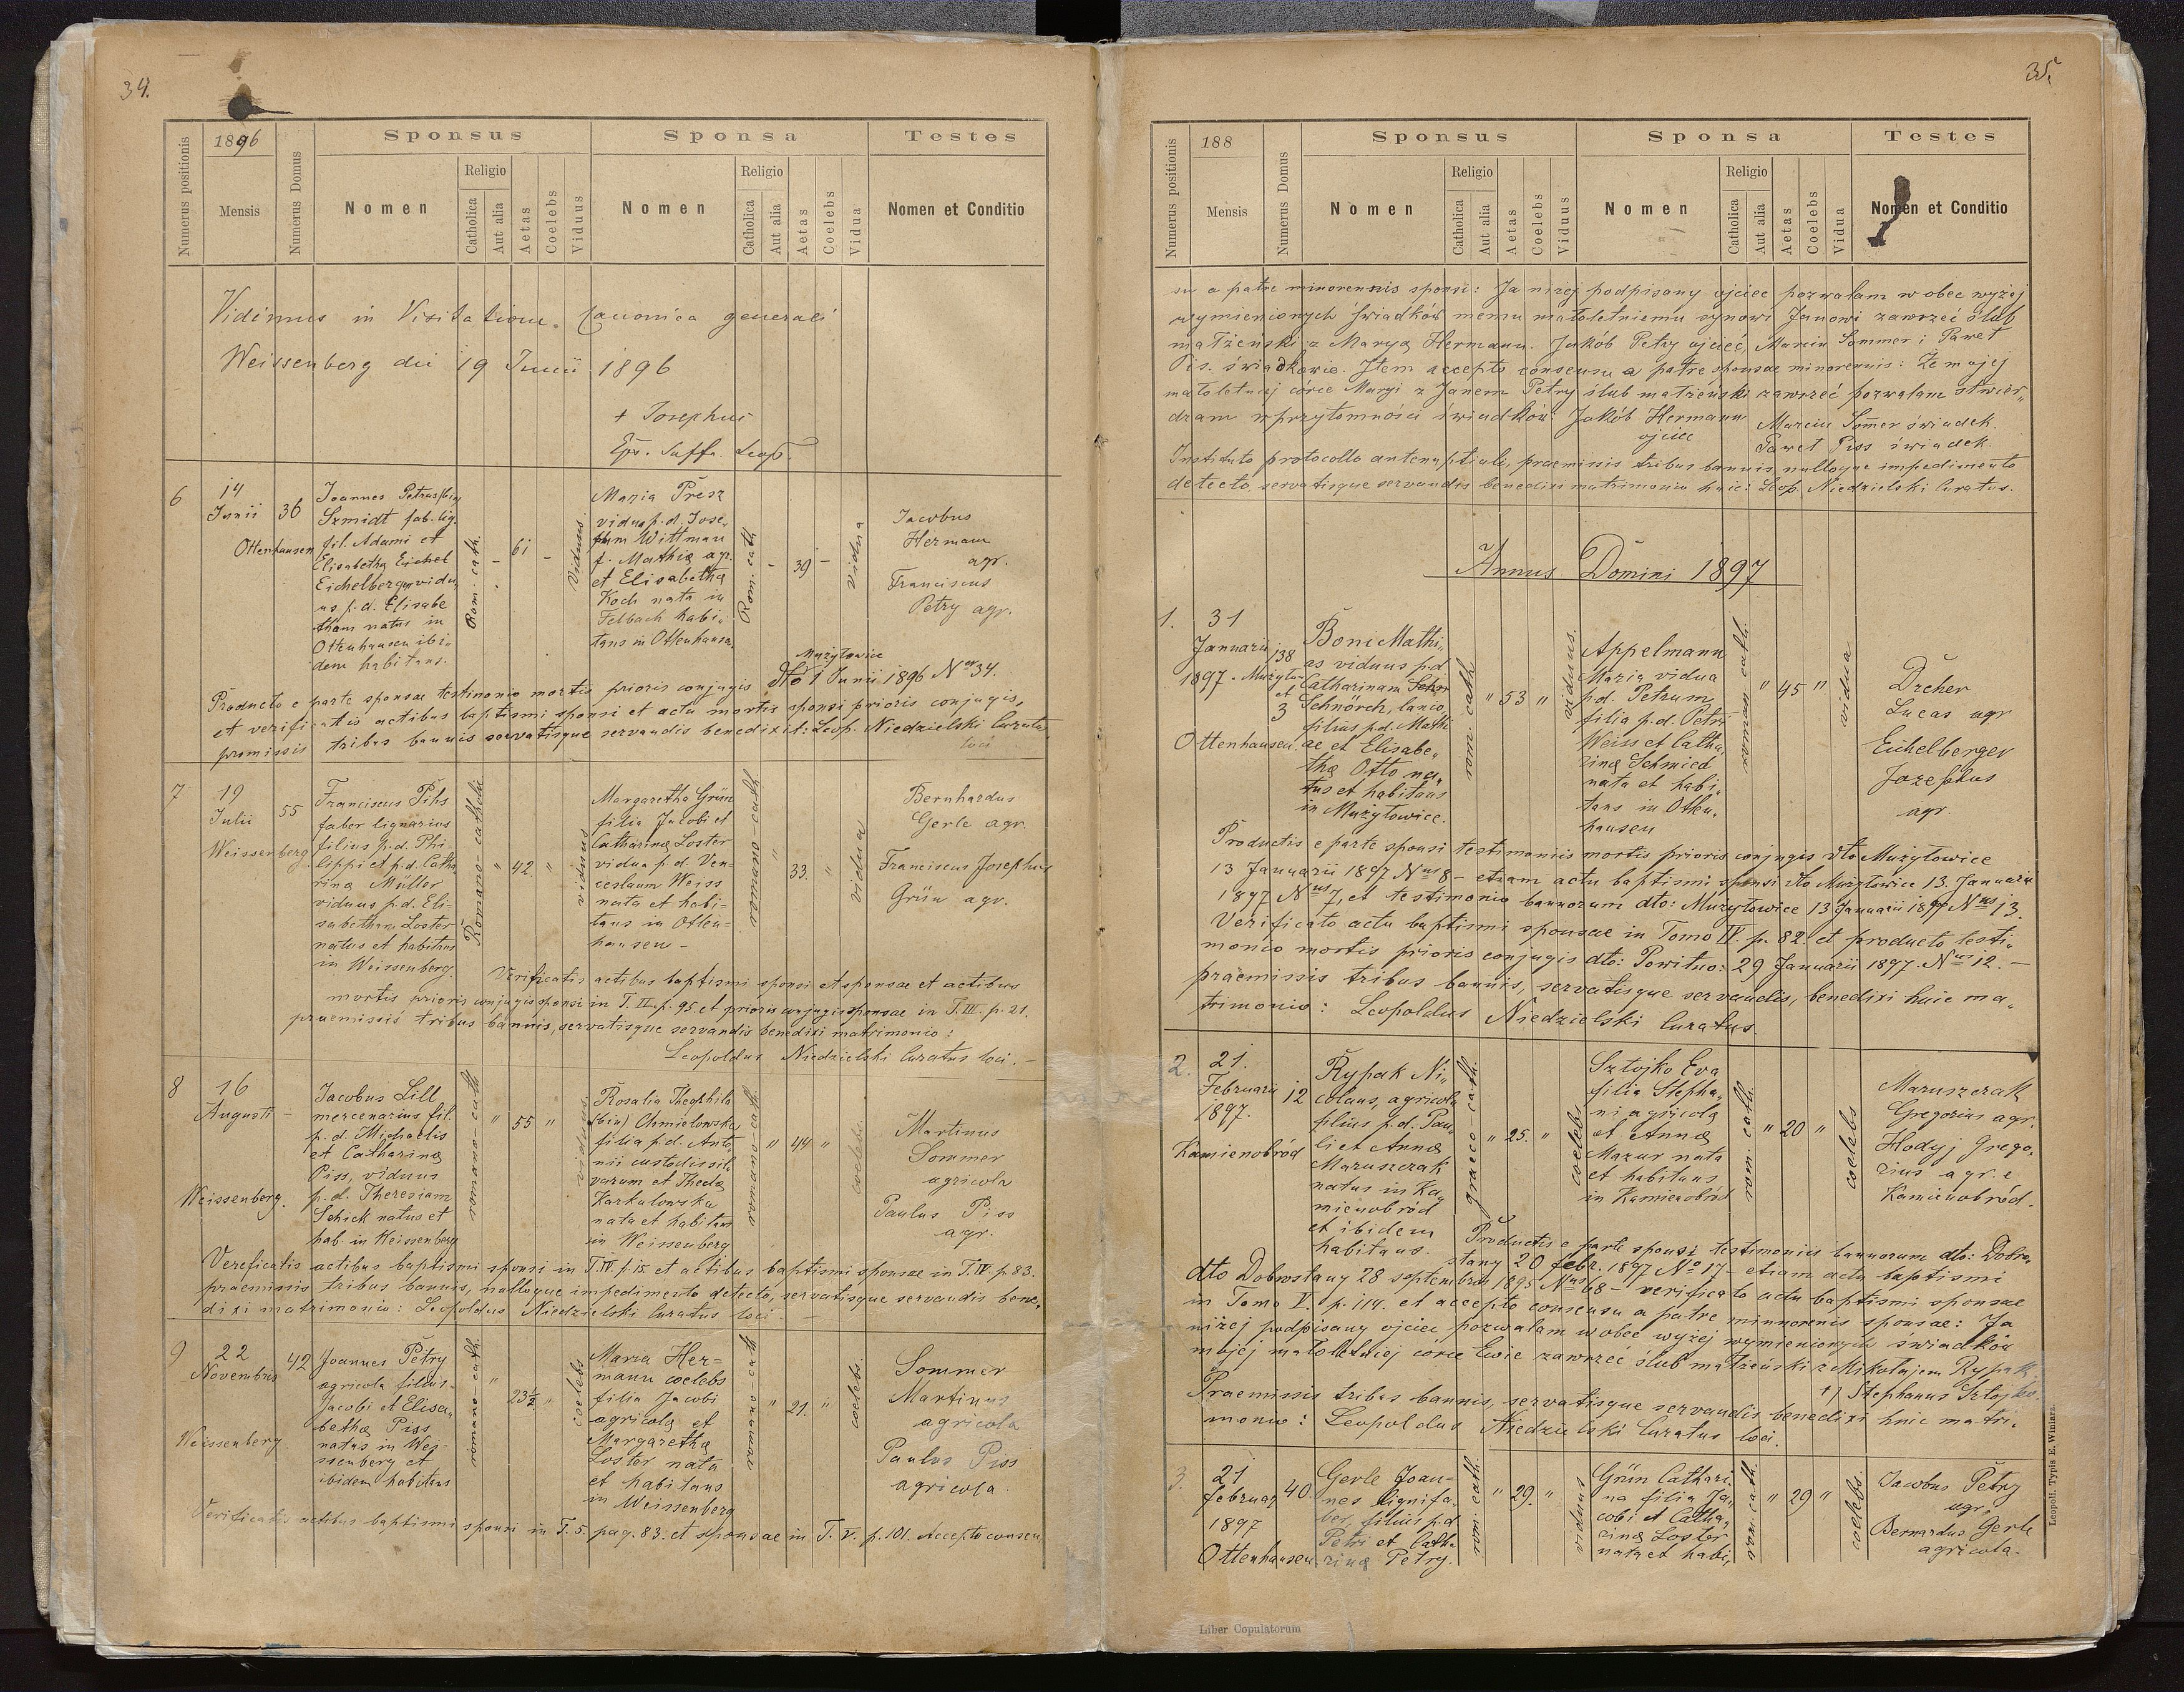 34.
Numerus positionis
1896
Mensis
Numerus Domus
Sponsus
Nomen
Religio
Catholica
Aut alia
Aetas
Coelebs
Viduus
Sponsa
Nomen
Religio
Catholica
Aut alia
Aetas
Coelebs
Vidua
Testes
Nomen et Conditio
Vidimus in Visitatione Canonica generali
Weissenberg die 19 Junii 1896
+ Josephus
Eps. Suffr. Leop.
6
14
Junii
36
Ottenhausen
Joannes Petrus (bin)
Szmidt fab. lig.
fil. Adami et
Elisabetha Eichel
Eichelberger vidu
us p.d. Elisabe
tham natus in
Ottenhausen ibi-
dem habitans.
Rom. cath.
61
Viduus
Maria Presz
vidua p.d. Jose-
phum Wittman
f. Mathiæ agr.
et Elisabetha
Koch nata in
Felbach habi-
tans in Ottenhausen
Rom. cath
39
vidua
Jacobus
Hermann
agr.
Franciscus
Petry agr.
Mużyłowice
Producto e parte sponsae testimonio mortis prioris conjugis dto 1 Junii 1896 Ner 34.
et verificatis actibus baptismi sponsi et actu mortis sponsi prioris conjugis,
premissis tribus bannis servatisque servandis benedixit: Leop. Niedzielski Curatus
loci
7
19
Julii
55
Weissenberg
Franciscus Pihs
faber lignarius
filius p.d. Phi-
lippi et p.d. Catha
rinæ Müller
viduus p.d. Eli-
sabetham Loster
natus et habitans
in Weissenberg.
Romano-catholic
42.
viduus
Margaretha Grün
filia Jacobi et
Catharinæ Loster
vidua p.d. Ven-
ceslaum Weiss
nata et habi-
tans in Otten-
hausen -
romano-cath
33.
vidua
Bernhardus
Gerle agr.
Franciscus Josephus
Grün agr.
Verificatis actibus baptismi sponsi et sponsae et actibus
mortis prioris conjugis sponsi in T. II. p. 95. et prioris conjugis sponsae in T. III. p. 21.
praemissis tribus bannis, servatisque servandis benedixi matrimonio:
Leopoldus Niedzielski Curatus loci. -
8
16
Augusti -
Weissenberg.
Jacobus Lill
mercenarius fil.
p.d. Michaelis
et Catharinæ
Piss, viduus
p.d. Theresiam
Schick natus et
hab. in Weissenberg
romano-cath
55
viduus
Rosalia Theophila
(bin) Chmielowska
filia p.d. Anto
nii custodis sil-
varum et Theclæ
Karkulowska
nata et habitans
in Weissenberg
romano-cath
44
coelebs
Martinus
Sommer
agricola
Paulus Piss
agr.
Verificatis actibus baptismi sponsi in T. IV. p. 15. et actibus baptismi sponsae in T. IV. p. 83.
praemissis tribus bannis, nulloque impedimento detecto, servatisque servandis bene-
dixi matrimonio: Leopoldus Niedzielski Curatus loci. -
9
22
Novembris
42
Weissenberg
Joannes Petry
agricola filius
Jacobi et Elisa-
bethæ Piss
natus in Wei-
ssenberg et
ibidem habitans
romano-cath.
23½
coelebs
Maria Her-
mann coelebs
filia Jacobi
agricolæ et
Margarethæ
Loster nata
et habitans
in Weissenberg
romano-cath.
21.
coelebs.
Sommer
Martinus
agricola
Paulus Piss
agricola.
Verificatis actibus baptismi sponsi in T. 5. pag. 83. et sponsae in T. V. p. 101. Accepto consen
35.
Numerus positionis
188
Mensis
Numerus Domus
Sponsus
Nomen
Religio
Catholica
Aut alia
Aetas
Coelebs
Viduus
Sponsa
Nomen
Religio
Catholica
Aut alia
Aetas
Coelebs
Vidua
Testes
Nomen et Conditio
su a patre minorennis sponsi: Ja niżej podpisany ojciec pozwalam w obec wyżej
wymienionych świadków memu małoletniemu synowi Janowi zawrzeć ślub
małżeński z Maryą Hermann. Jakób Petry ojciec, Marcin Sommer i Paweł
Pis. świadkowie. Item accepto consensu a patre sponsae minorennis: Że mojej
małoletniej córce Maryi z Janem Petry ślub małżeński zawrzeć pozwalam stwier-
dzam w przytomności świadków: Jakób Hermann
ojciec
Marcin Sommer świadek.
Paweł Piss świadek.
Instituto protocollo antenuptiali, praemissis tribus bannis nulloque impedimento
detecto, servatisque servandis benedixi matrimonio huic: Leop. Niedzielski Curatus.
Annus Domini 1897
1.
31
Januarii
1897. Mużyłow
138
et
3
Ottenhausen
Boni Mathi-
as viduus p.d
Catharinam
Schnörch, lanio,
filius p.d. Mathi
ae et Elisabe-
thæ Otto na-
tus et habitans
in Mużyłowice.
rom cath
53
viduus.
Appelmann
Maria vidua
p.d. Petrum
filia p.d. Petri
Weiss et Catha-
rinæ Schmied
nata et habi-
tans in Otten-
hausen
roman cath.
45
vidua
Dreher
Lucas agr
Eichelberger
Josephus
agr.
Productis e parte sponsi testimoniis mortis prioris conjugis dto Mużyłowice
13 Januarii 1897 Nus 8 - etiam actu baptismi sponsi dto Mużyłowice 13. Januarii
1897 Nus 7, et testimonio bannorum dto: Mużyłowice 13 Januarii 1897 Nus 13.
Verificato actu baptismi sponsae in Tomo IV. p. 82 et producto testi-
monio mortis prioris conjugis dto: Powitno: 29 Januarii 1897. Nus 12. -
praemissis tribus bannis, servatisque servandis, benedixi huic ma-
trimonio: Leopoldus Niedzielski Curatus.
2.
21.
Februarii
1897.
12
Kamienobród
Rypak Ni-
colaus, agricola
filius p.d. Pau-
li et Annæ
Maruszczak
natus in Ka-
mienobród
et ibidem
habitans.
graeco-cath.
25.
coelebs
Sztojko Eva
filia Stepha-
ni agricolæ
et Annæ
Mazur nata
et habitans
in Kamienobród
rom. cath.
20
coelebs
Maruszczak
Gregorius agr.
Hodyj Grego-
rius agr. e
Kamienobród.
Productis e parte sponsi testimoniis bannorum dto: Dobro
stany 20 febr. 1897 No 17 - etiam actu baptismi
dto Dobrostany 28 septembris 1895 Nus 68 - verificato actu baptismi sponsae
in Tomo V. p. 114. et accepto consensu a patre minnorenis sponsae: Ja
niżej podpisany ojciec pozwalam w obec wyżej wymienionych świadków
mojéj małoletniej córce Ewie zawrzeć ślub małżeński z Mikołajem Rypak.
+) Stephanus Sztojko.
Praemissis tribus bannis, servatisque servandis benedixi huic matri-
monio: Leopoldus Niedzielski Curatus loci.
3.
21
februar
1897
40
Ottenhausen
Gerle Joan-
nes lignifa-
ber, filius p.d
Petri et Catha
rinæ Petry.
rom. cath.
29.
viduus
Grün Cathari
na filia Ja-
cobi et Catha-
rinæ Loster
nata et habi-
rom. cath.
29
coelebs.
Jacobus Petry
agr.
Bernardus Gerle
agricola.
Leopoli. Typis E. Winiarz.
Liber Copulatorum